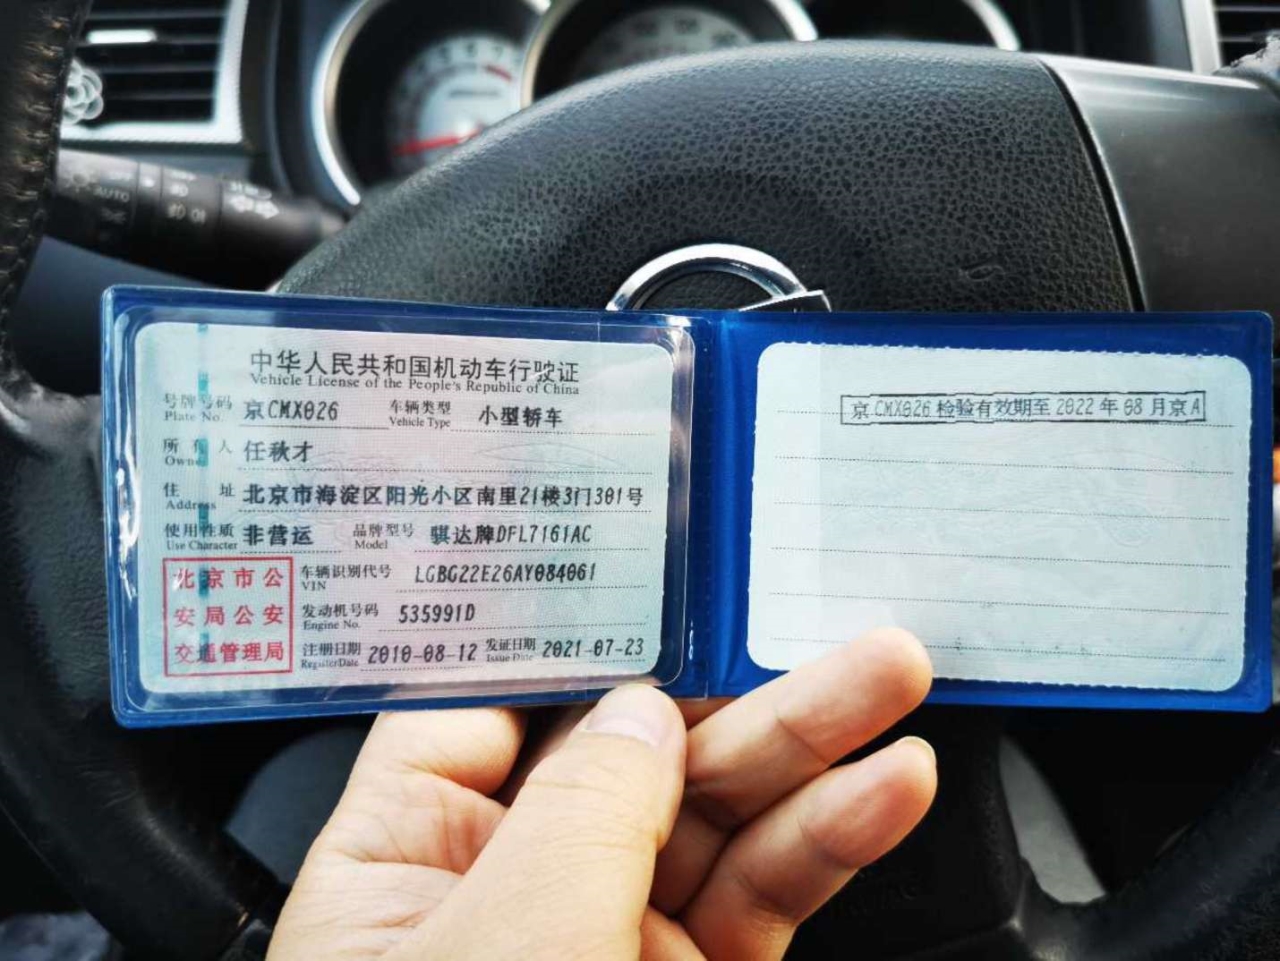 中华人民共和国机动车行驶证
Vehicle License of the People's Republic of China
号牌号码 京CMX026 车辆类型 小型轿车
Plate No. Vehicle Type
所有人 任秋才
Owner
住址 北京市海淀区阳光小区南里21楼3门301号
Address
使用性质 非营运 品牌型号 骐达牌DFL7161AC
Use Character Model
北京市公
安局公安
交通管理局
车辆识别代号 LGBG22E26AY084061
VIN
发动机号码 535991D
Engine No.
注册日期 2010-08-12 发证日期 2021-07-23
Register Date Issue Date
京CMX026检验有效期至2022年08月京A
AUTO